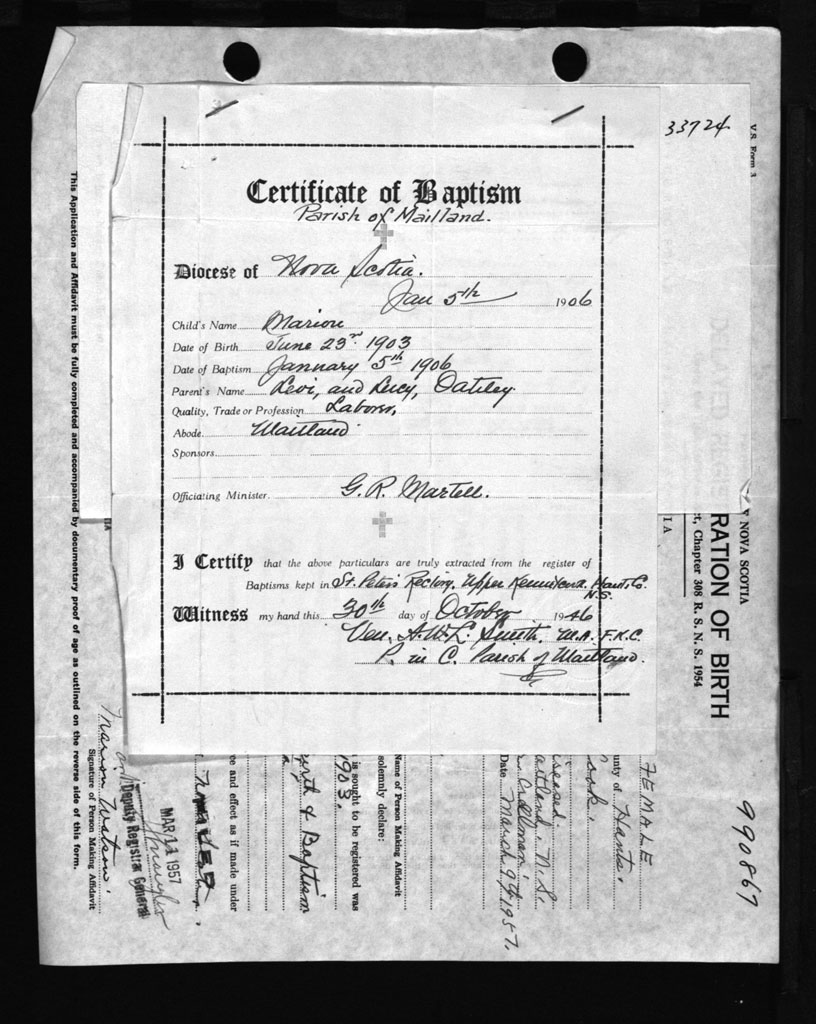 33724
V.S. Form 3
Certificate of Baptism
Parish of Maitland.
Diocese of Nova Scotia.
Jan 5th 1906
Child's Name Marion
Date of Birth June 23rd 1903
Date of Baptism January 5th 1906
Parent's Name Levi, and Lucy, Oatley
Quality, Trade or Profession Laborer,
Abode Maitland
Sponsors
Officiating Minister. G. R. Martell.
I Certify that the above particulars are truly extracted from the register of
Baptisms kept in St. Peter's Rectory, Upper Kennetcook Hants Co.
N.S.
Witness my hand this 30th day of October 1946
Ven. A. W. L. Smith, M.A. F.K.C.
P. in C. Parish of Maitland.
This Application and Affidavit must be fully completed and accompanied by documentary proof of age as outlined on the reverse side of this form.
NOVA SCOTIA
RATION OF BIRTH
ct, Chapter 308 R. S. N. S. 1954
IA
990867
FEMALE
unty of Hants.
ook.
eceased.
aitland, N.S.
Date March 9th 1957.
Name of Person Making Affidavit
solemnly declare:
is sought to be registered was
1903.
irth & Baptism
ce and effect as if made under
MAR 11 1957
Deputy Registrar General
Marion Watson.
Signature of Person Making Affidavit